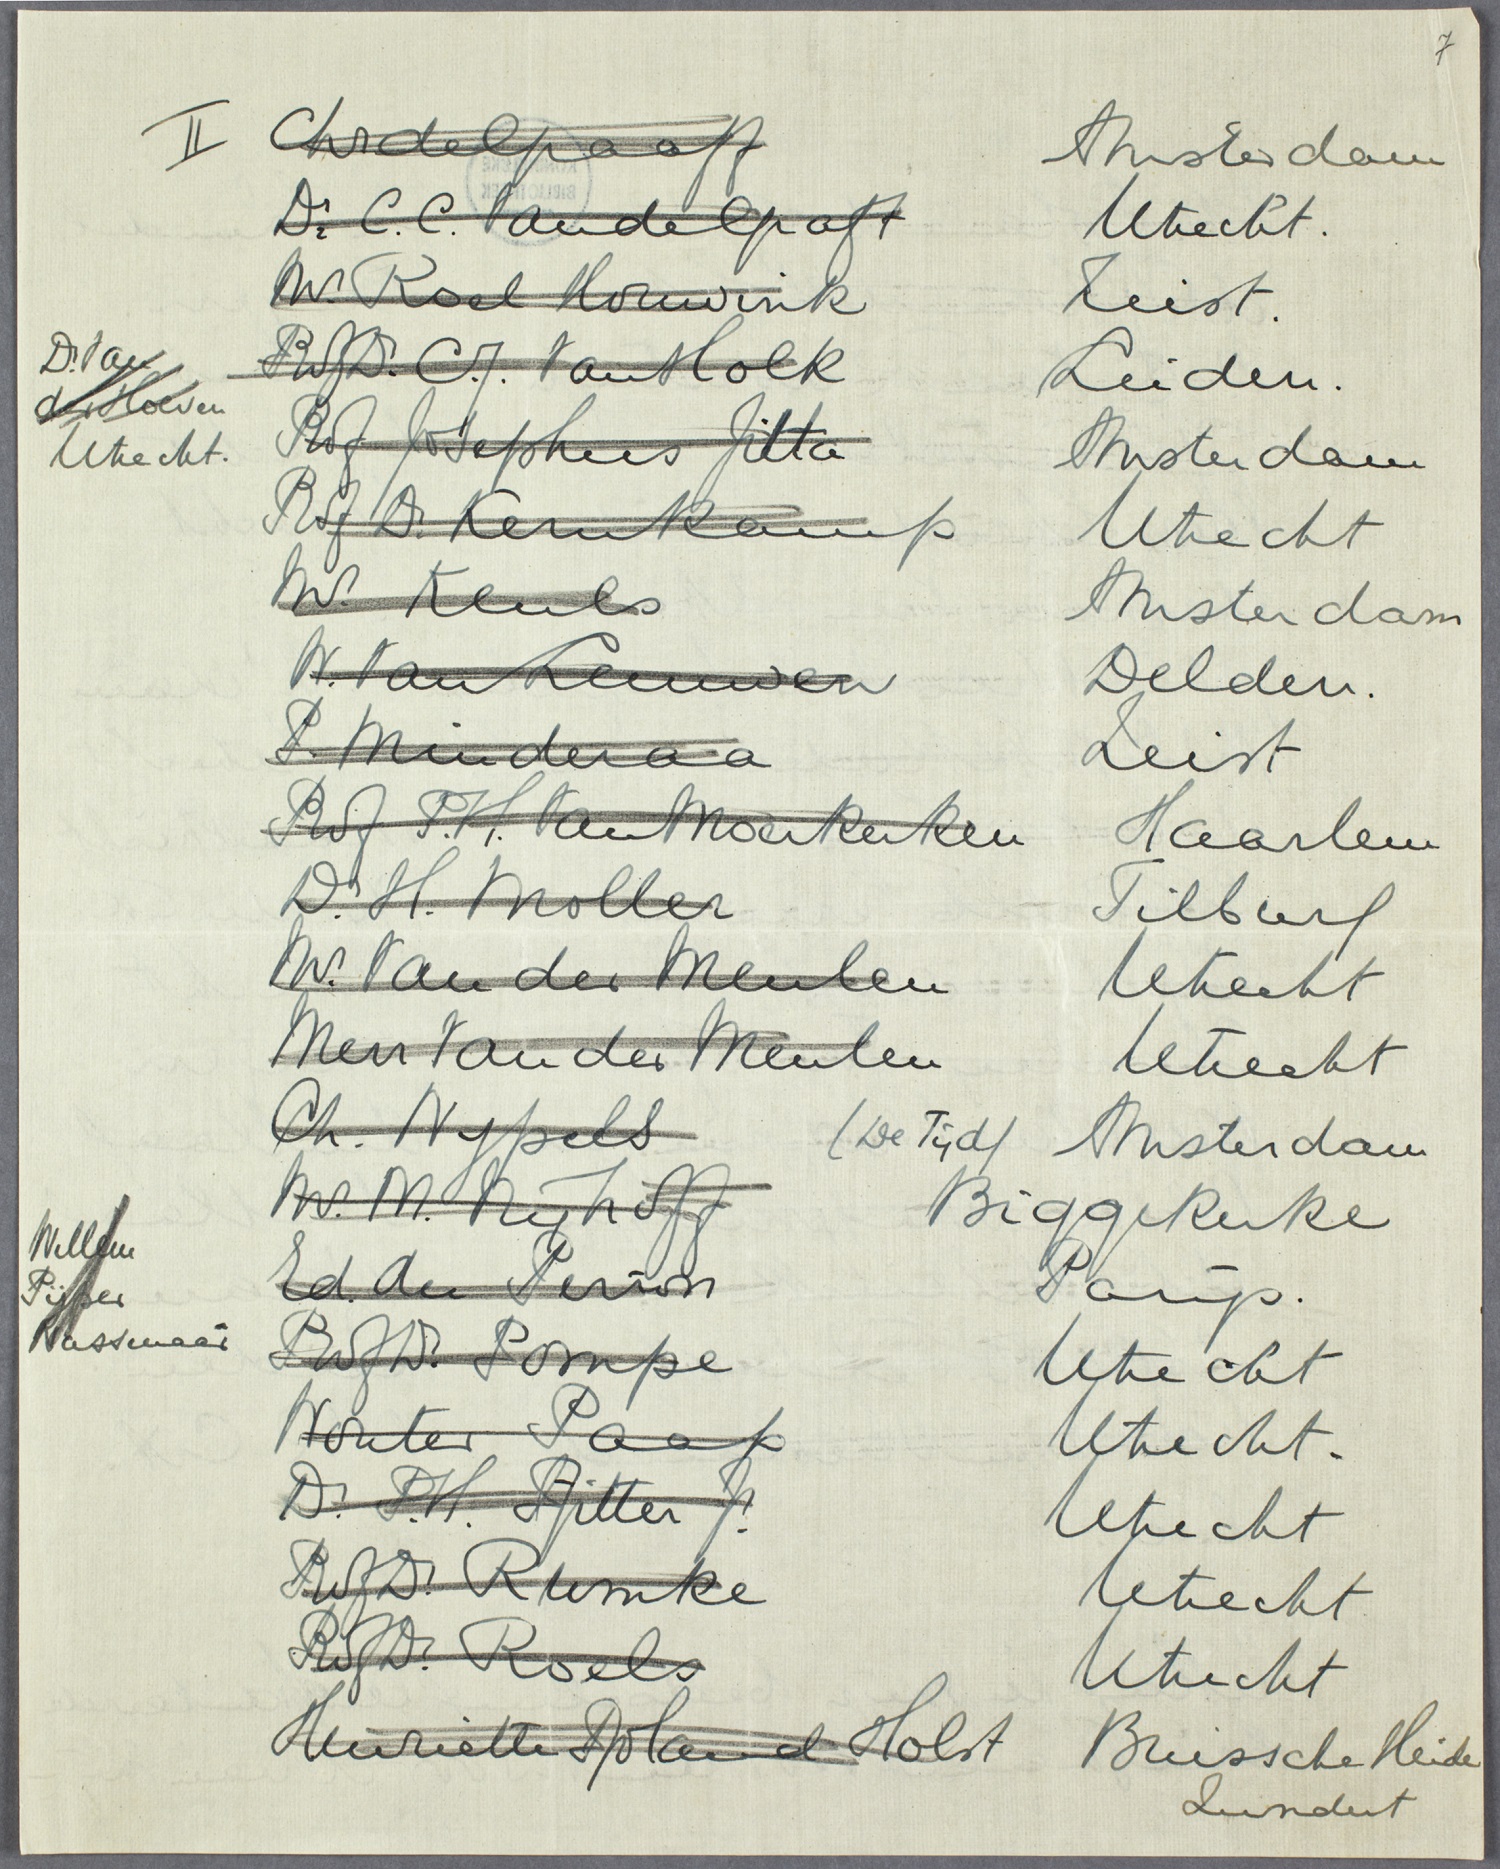 7
II Chr de Graaff Amsterdam
Dr. C.C. Van de Graft Utrecht.
Mr. Roel Houwink Zeist.
Dr. Van
der Hoeven
Utrecht.
Prof Dr. C.J. Van Holk Leiden.
Prof Josephus Jitta Amsterdam
Prof Dr. Kernkamp Utrecht
Mr. Keuls Amsterdam
W. Van Leeuwen Delden.
P. Minderaa Zeist
Prof P.H. Van Moerkerken Haarlem
Dr. H. Moller Tilburg
Mr. Van der Meulen Utrecht
Mevr Van der Meulen Utrecht
Ch. Nypels (De Tijd) Amsterdam
Mr. M. Nijhoff Biggekerke
Willem
Pijper
Wassenaar
Ed. du Perron Parijs.
Prof Dr. Pompe Utrecht
Wouter Paap Utrecht.
Dr. P.H. Ritter Jr. Utrecht
Prof Dr. Rümke Utrecht
Prof Dr. Roels Utrecht
Henriette Roland Holst Buissche Heide
Zundert